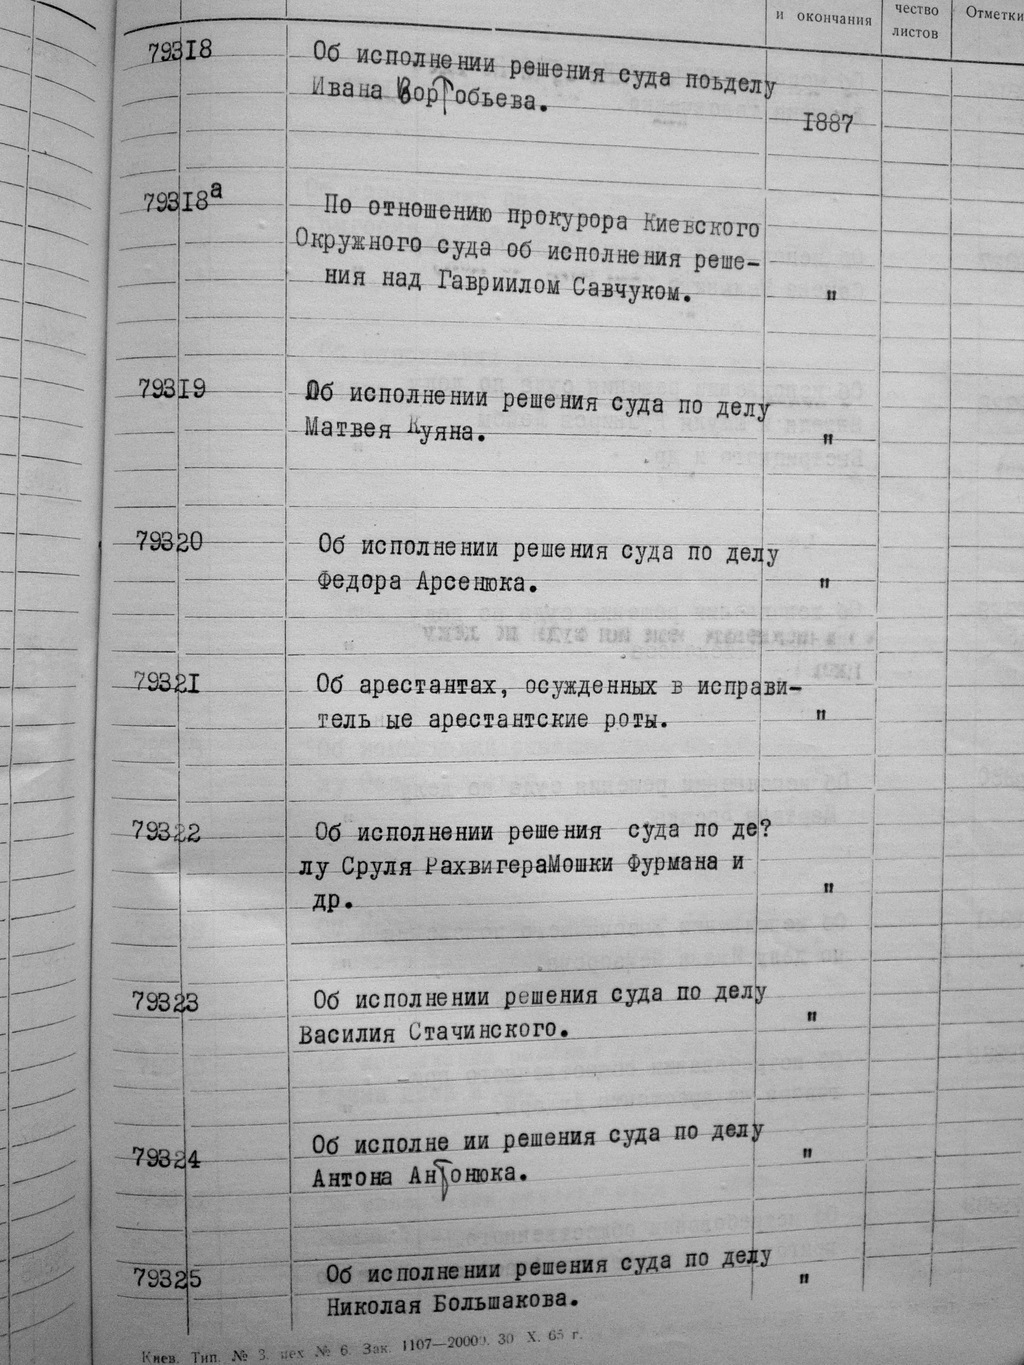 и окончания
чество
листов
Отметки
79318
Об исполнении решения суда поьделу
Ивана Вортобьева.
1887
79318а
По отношению прокурора Киевского
Окружного суда об исполнения реше-
ния над Гавриилом Савчуком.
"
79319
Об исполнении решения суда по делу
Матвея Куяна.
"
79320
Об исполнении решения суда по делу
Федора Арсенюка.
"
79321
Об арестантах, осужденных в исправи-
тель ые арестантские роты.
"
79322
Об исполнении решения суда по де?
лу Сруля РахвигераМошки Фурмана и
др.
"
79323
Об исполнении решения суда по делу
Василия Стачинского.
"
79324
Об исполне ии решения суда по делу
Антона Антонюка.
"
79325
Об исполнении решения суда по делу
Николая Большакова.
"
Киев. Тип. № 3. цех № 6. Зак. 1107—20000. 30 X. 65 г.